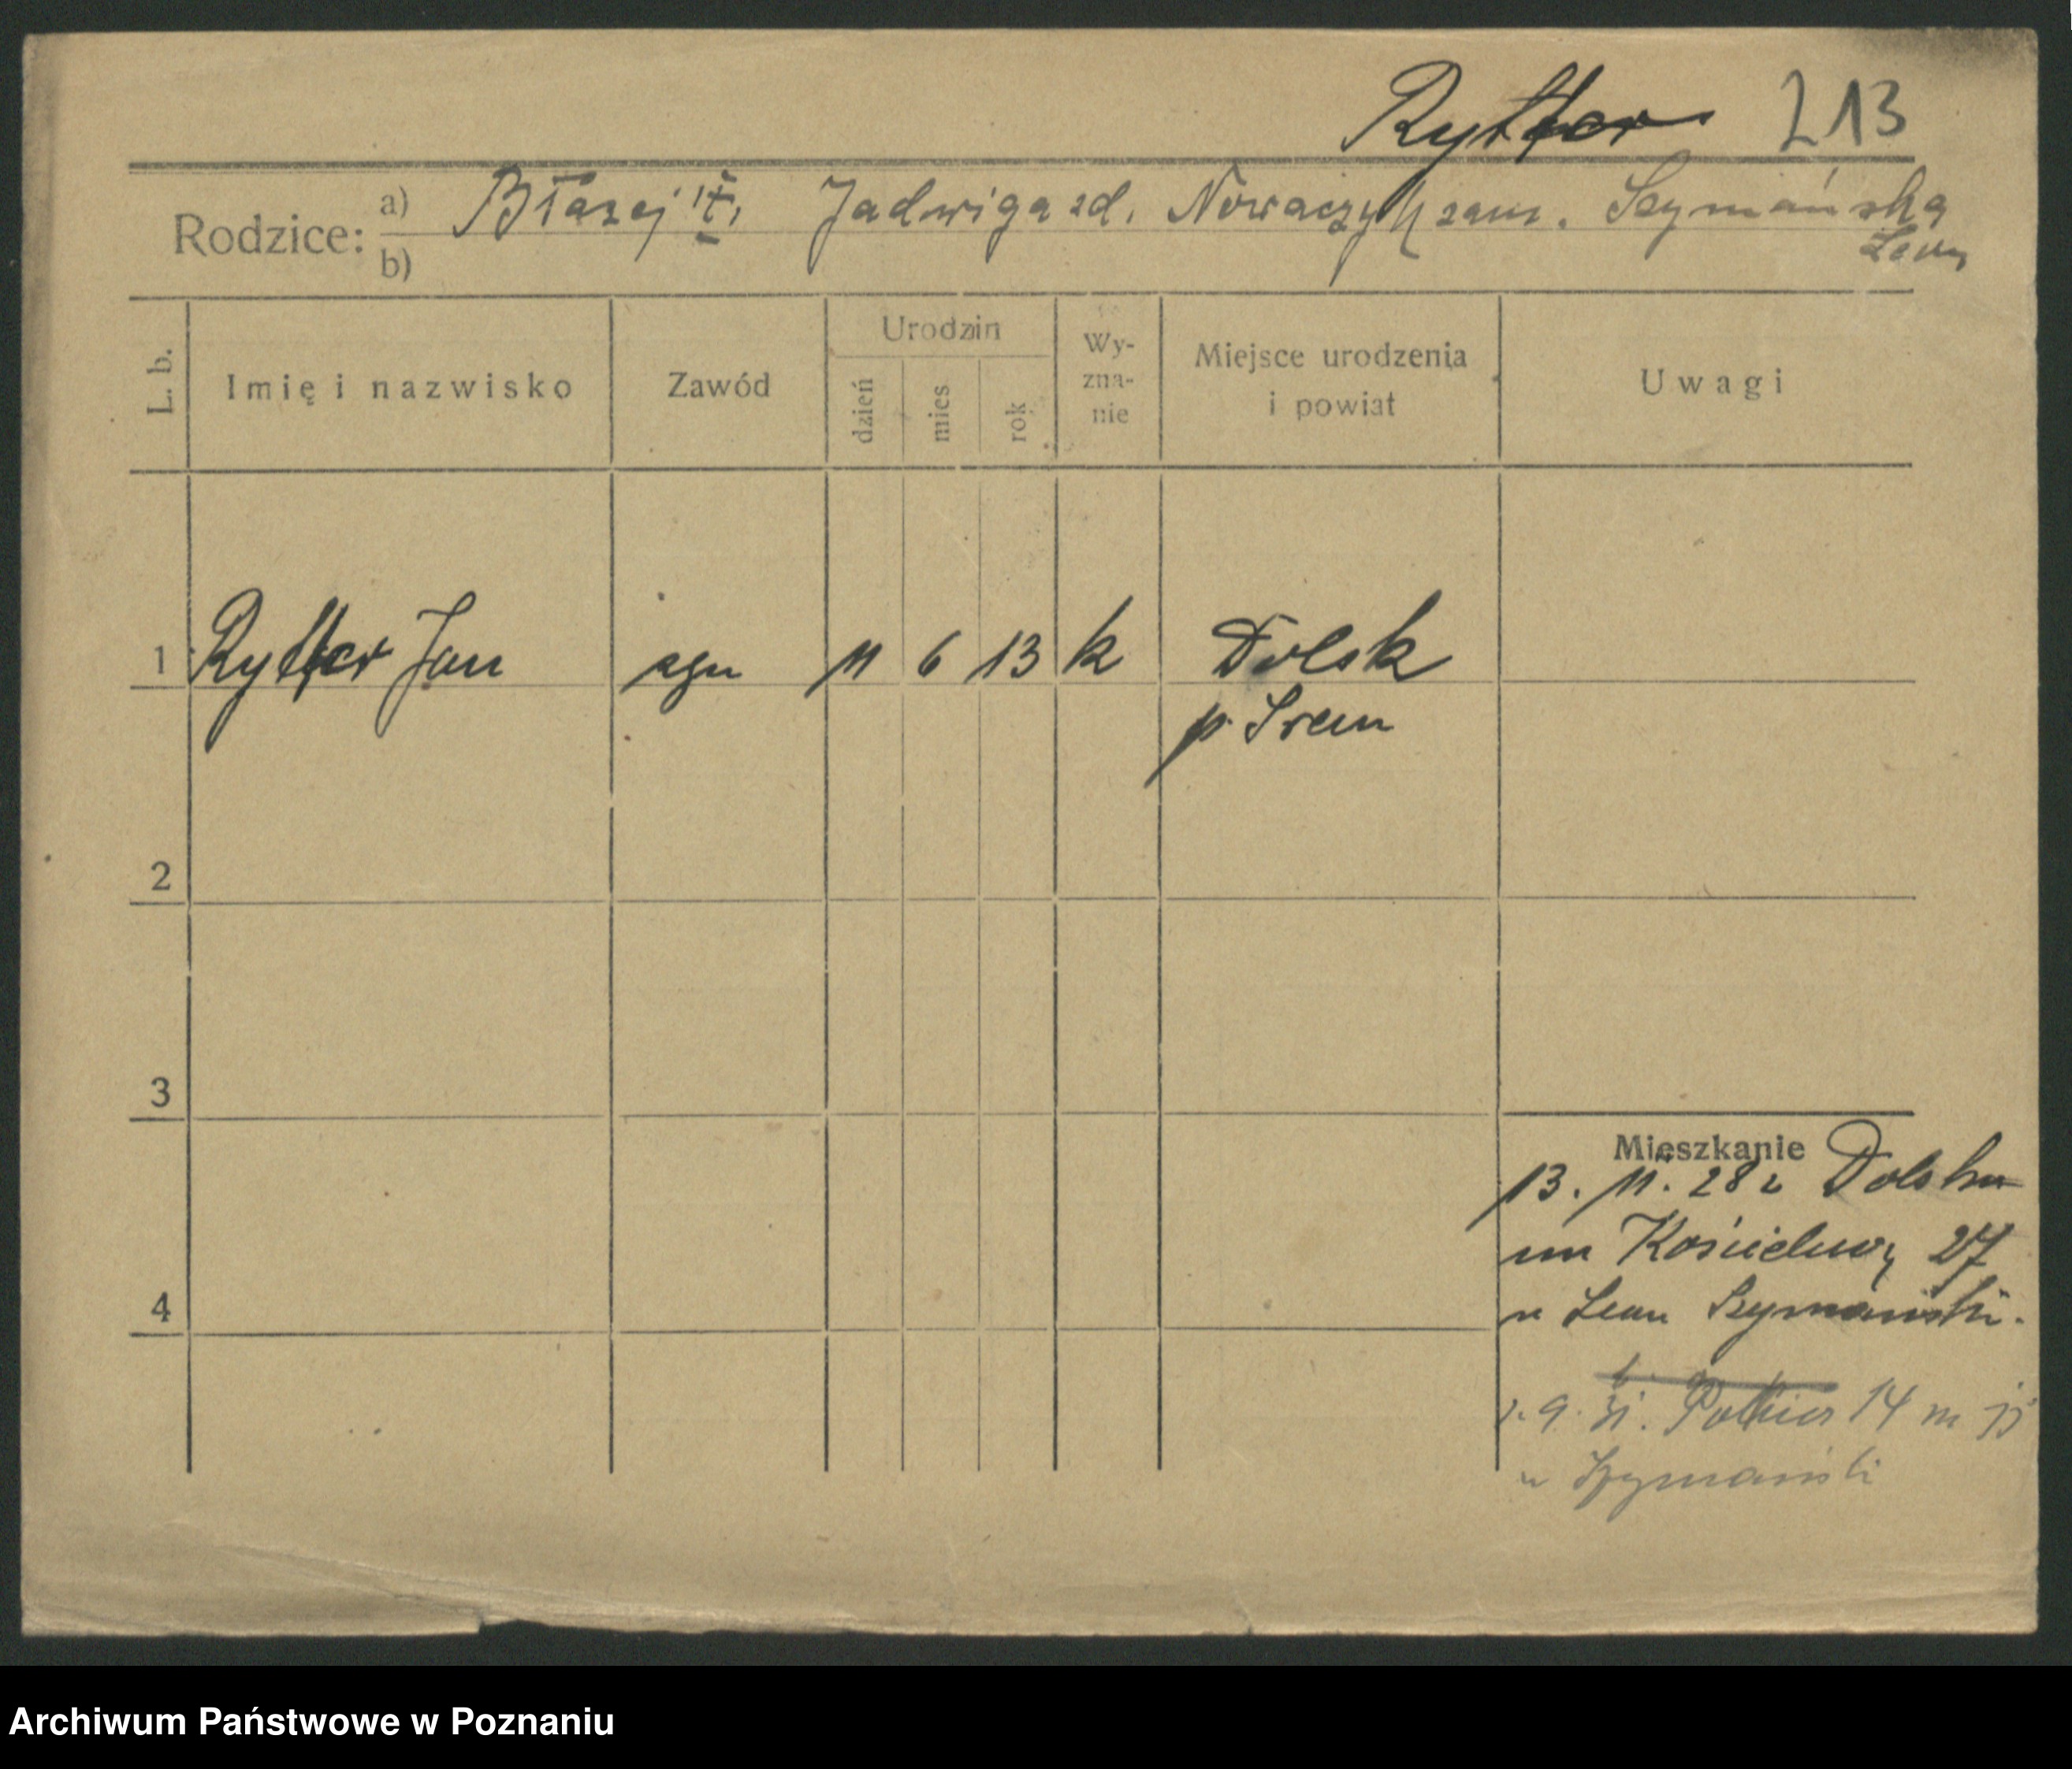 Rytter 213
Rodzice: a) Błażej Jadwiga zd. Nowaczyk zam. Szymańska
b) Leon
L. b. Imię i nazwisko Zawód Urodzin dzień mies rok Wy-zna-nie Miejsce urodzenia i powiat Uwagi
1 Rytter Jan 11 6 13 k Dolsk
p. Srem
2
3
Mieszkanie
13. 11. 28 z Dolska
Kościelna 27
4
u Leon Szymański.
14 m
u Szymański
Archiwum Państwowe w Poznaniu